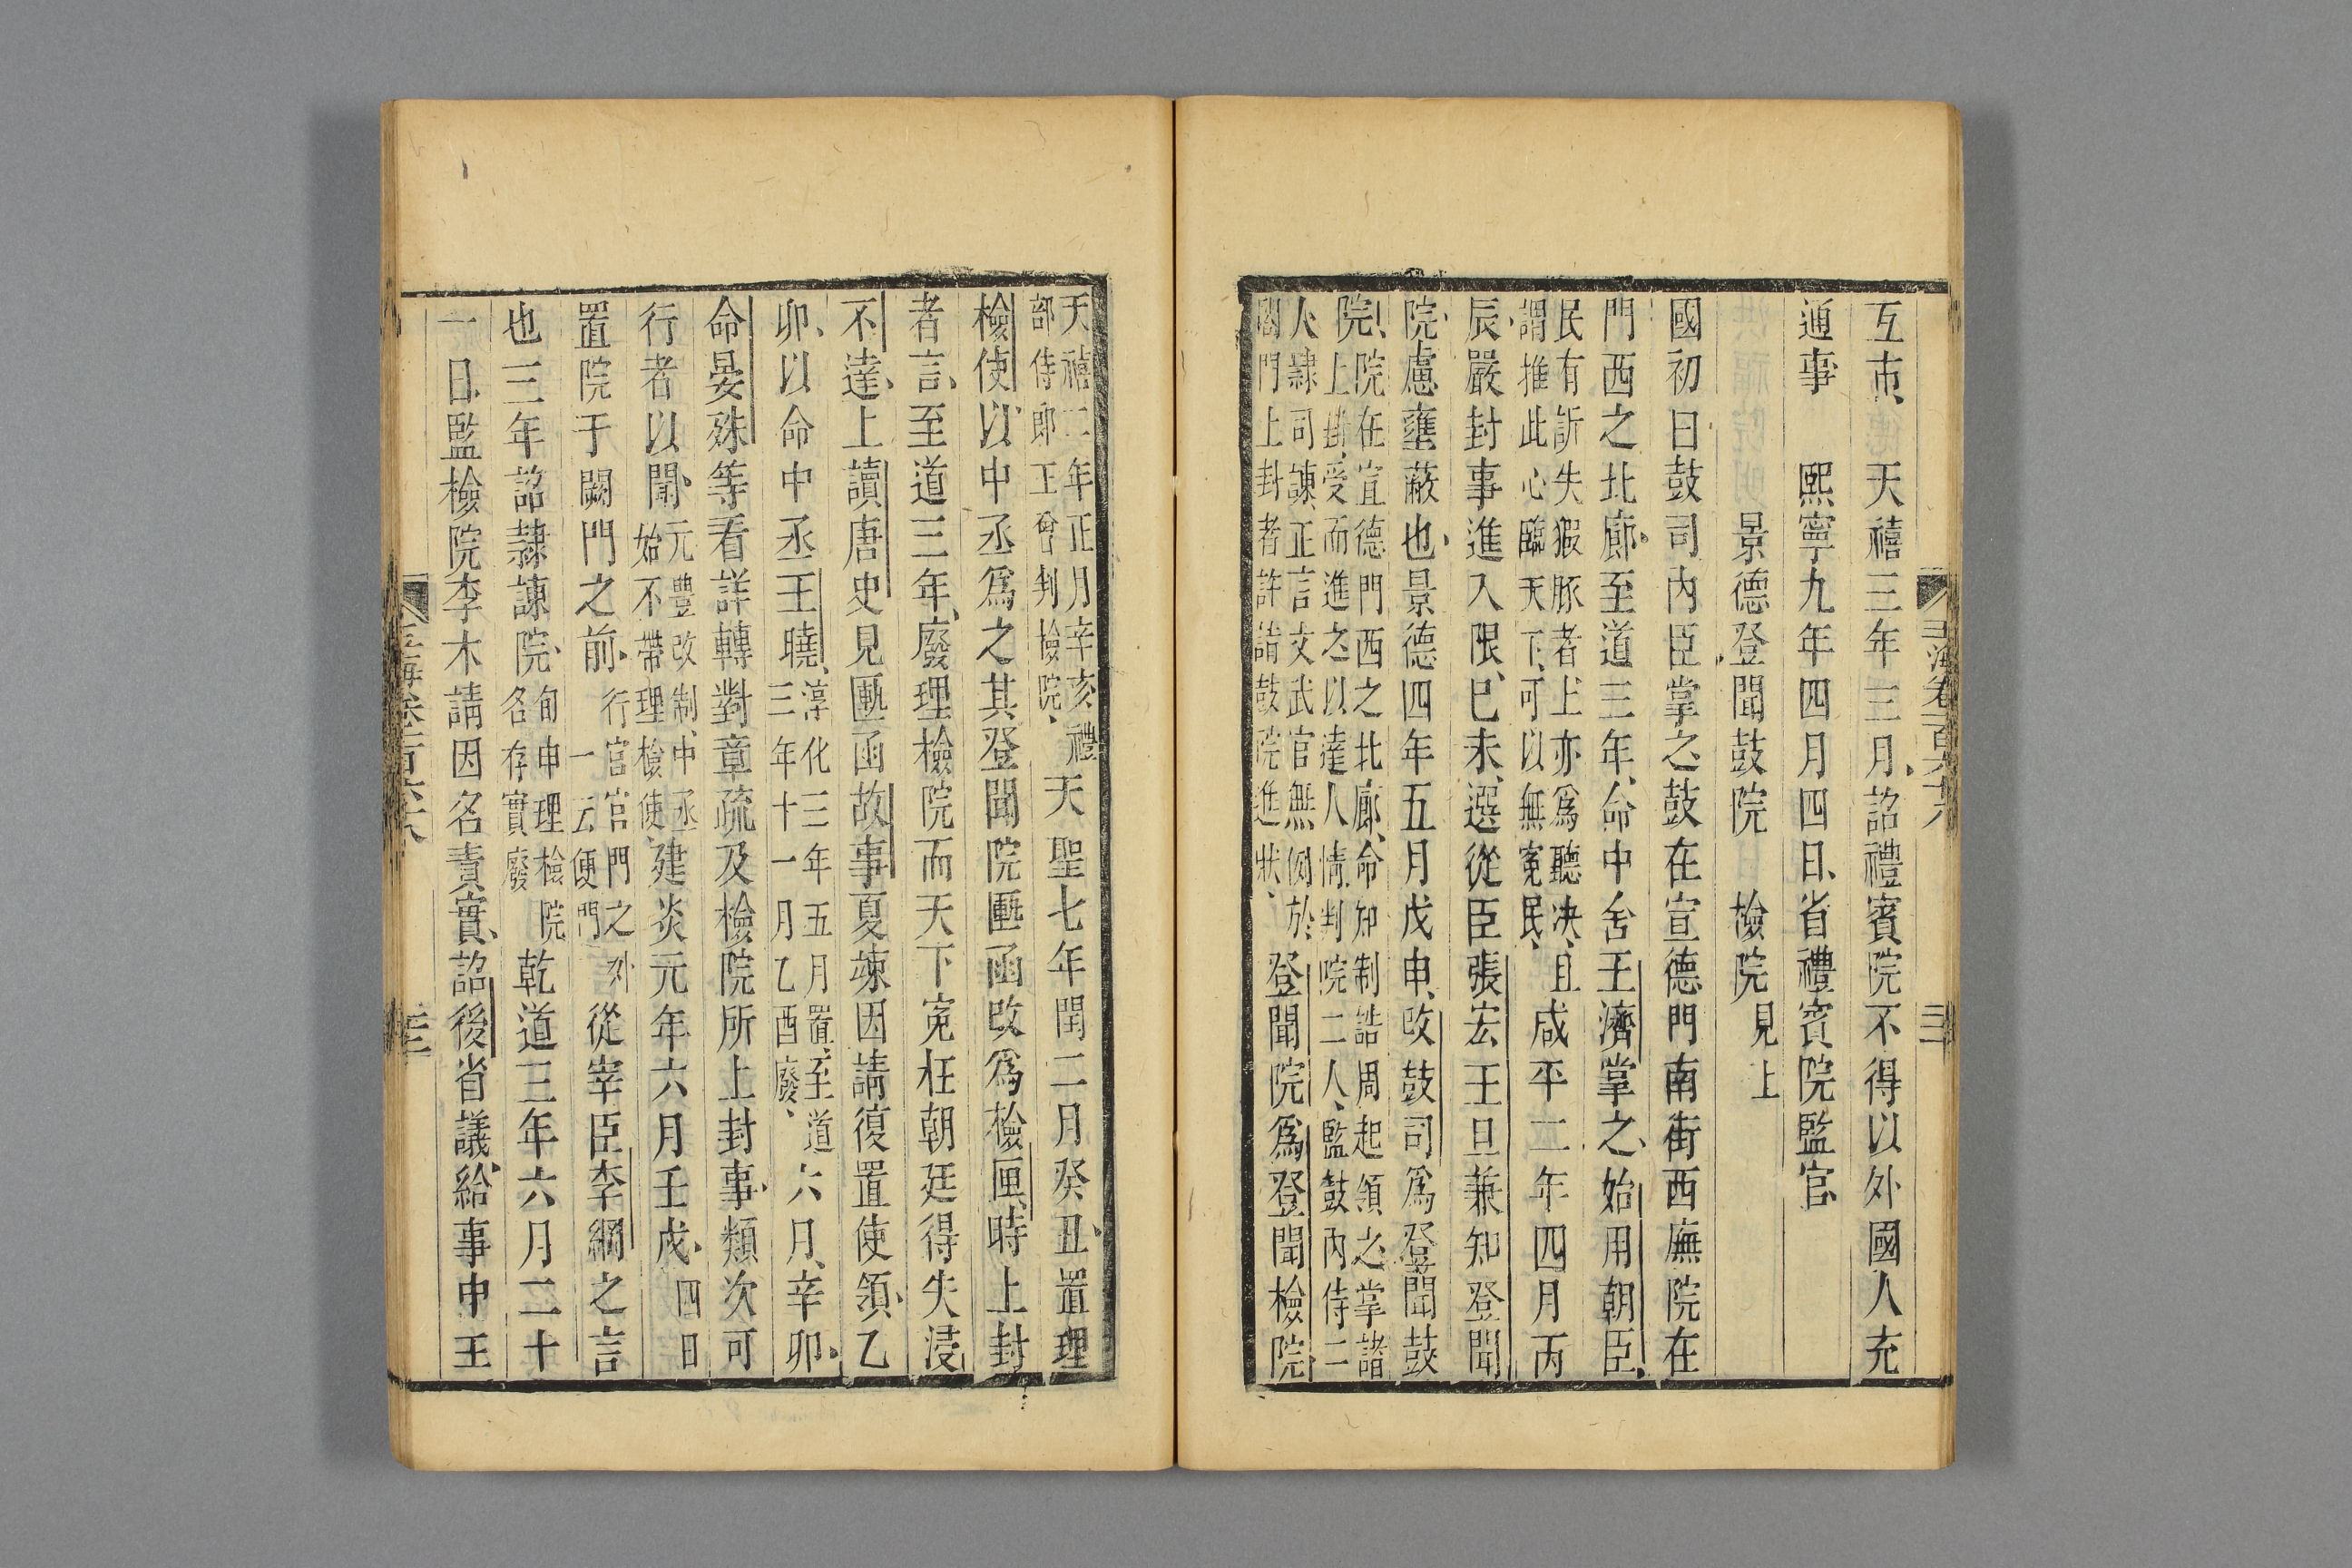 互市天禧三年三月詔禮賓院不得以外國人充
通事　熙寧九年四月四日省禮賓院監官
景德登聞鼓院　檢院見上
國初曰鼓司內臣掌之鼓在宣德門南街西廡院在
門西之北廊至道三年命中舍王濟掌之始用朝臣
民有訴失猳豚者上亦爲聽決且
謂推此心臨天下可以無寃民
咸平二年四月丙
辰嚴封事進入限巳未選從臣張宏王旦兼知登聞
院慮壅蔽也景德四年五月戊申改鼓司爲登聞鼓
院
院在宣德門西之北廊命知制誥周起領之掌諸
上封受而進之以達人情判院二人監鼓內侍二
人隸司諫正言文武官無例於
閤門上封者許詣鼓院進狀
登聞院爲登聞檢院
天禧二年正月辛亥禮
部侍郎王曾判檢院
天聖七年閏二月癸丑置理
檢使以中丞爲之其登聞院匭函改爲檢匣時上封
者言至道三年廢理檢院而天下寃枉朝廷得失浸
不達上讀唐史見匭函故事夏竦因請復置使領乙
卯以命中丞王曉
淳化三年五月置至道
三年十一月乙酉廢
六月辛卯
命晏殊等看詳轉對章疏及檢院所上封事類次可
行者以聞
元豐改制中丞
始不帶理檢使
建炎元年六月壬戌四日
置院于闕門之前
行宮宮門之外
一云便門
從宰臣李綱之言
也三年詔隸諫院
旬申理檢院
名存實廢
乾道三年六月二十
一日監檢院李木請因名責實詔後省議給事中王
玉海卷一百六十八
三二